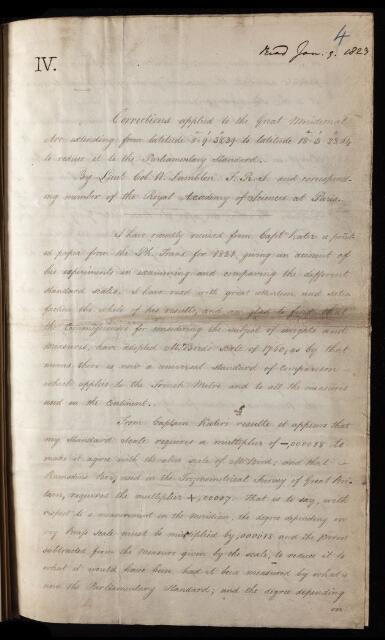 4
Read Jan. 9. 1823
IV.
Corrections applied to the Great Meridional
Arc extending from latitude 8° 9' 38",39 to latitude 18° 3' 23",64
to reduce it to the Parliamentary Standard.
By Lieut Col. W. Lambton F.R.S. and correspond-
ing member of the Royal Academy of Sciences at Paris.
I have recently received from Capt. Kater a print-
ed paper from the Ph. Trans for 1821, giving an account of
his experiments in examining and comparing the different
standard scales. I have read with great attention and satis-
faction the whole of his results, and am glad to find that
the for considering the subject of weights and
measures, have adopted Mr. Bird's scale of 1760, as by that
means there is now a universal standard of comparison
which applies to the French Metre and to all the measures
used on the Continent.
From Captain Kater's results it appears that
my Standard Scale requires a multiplier of -,000018 to
make it agree with the scale of Mr. Bird; and that
Ramsden's Bar, used in the Trigonometrical Survey of Great Bri-
tain, requires the multiplier +,00007. That is to say, with
respect to a measurement on the meridian, the degree depending on
my Brass Scale must be multiplied by ,000018 and the product
subtracted from the measure given by the scale, to reduce it to
what it would have been had it been measured by what is
now the Parliamentary Standard; and the degree depending
on